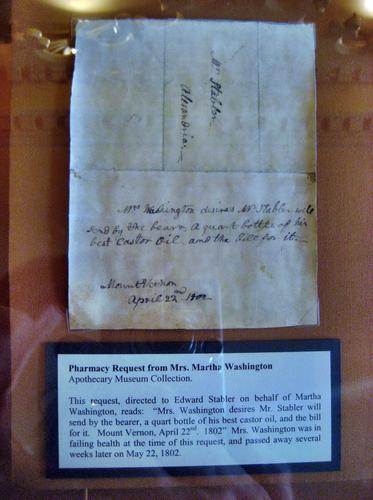 Mr. Stabler
Alexandria
Mrs. Washington desires Mr. Stabler will
send by the bearer, a quart bottle of his
best Castor Oil, and the bill for it.
Mount Vernon
April 22nd 1802
Pharmacy Request from Mrs. Martha Washington
Apothecary Museum Collection.
This request, directed to Edward Stabler on behalf of Martha
Washington, reads: "Mrs. Washington desires Mr. Stabler will
send by the bearer, a quart bottle of his best castor oil, and the bill
for it. Mount Vernon, April 22nd. 1802" Mrs. Washington was in
failing health at the time of this request, and passed away several
weeks later on May 22, 1802.